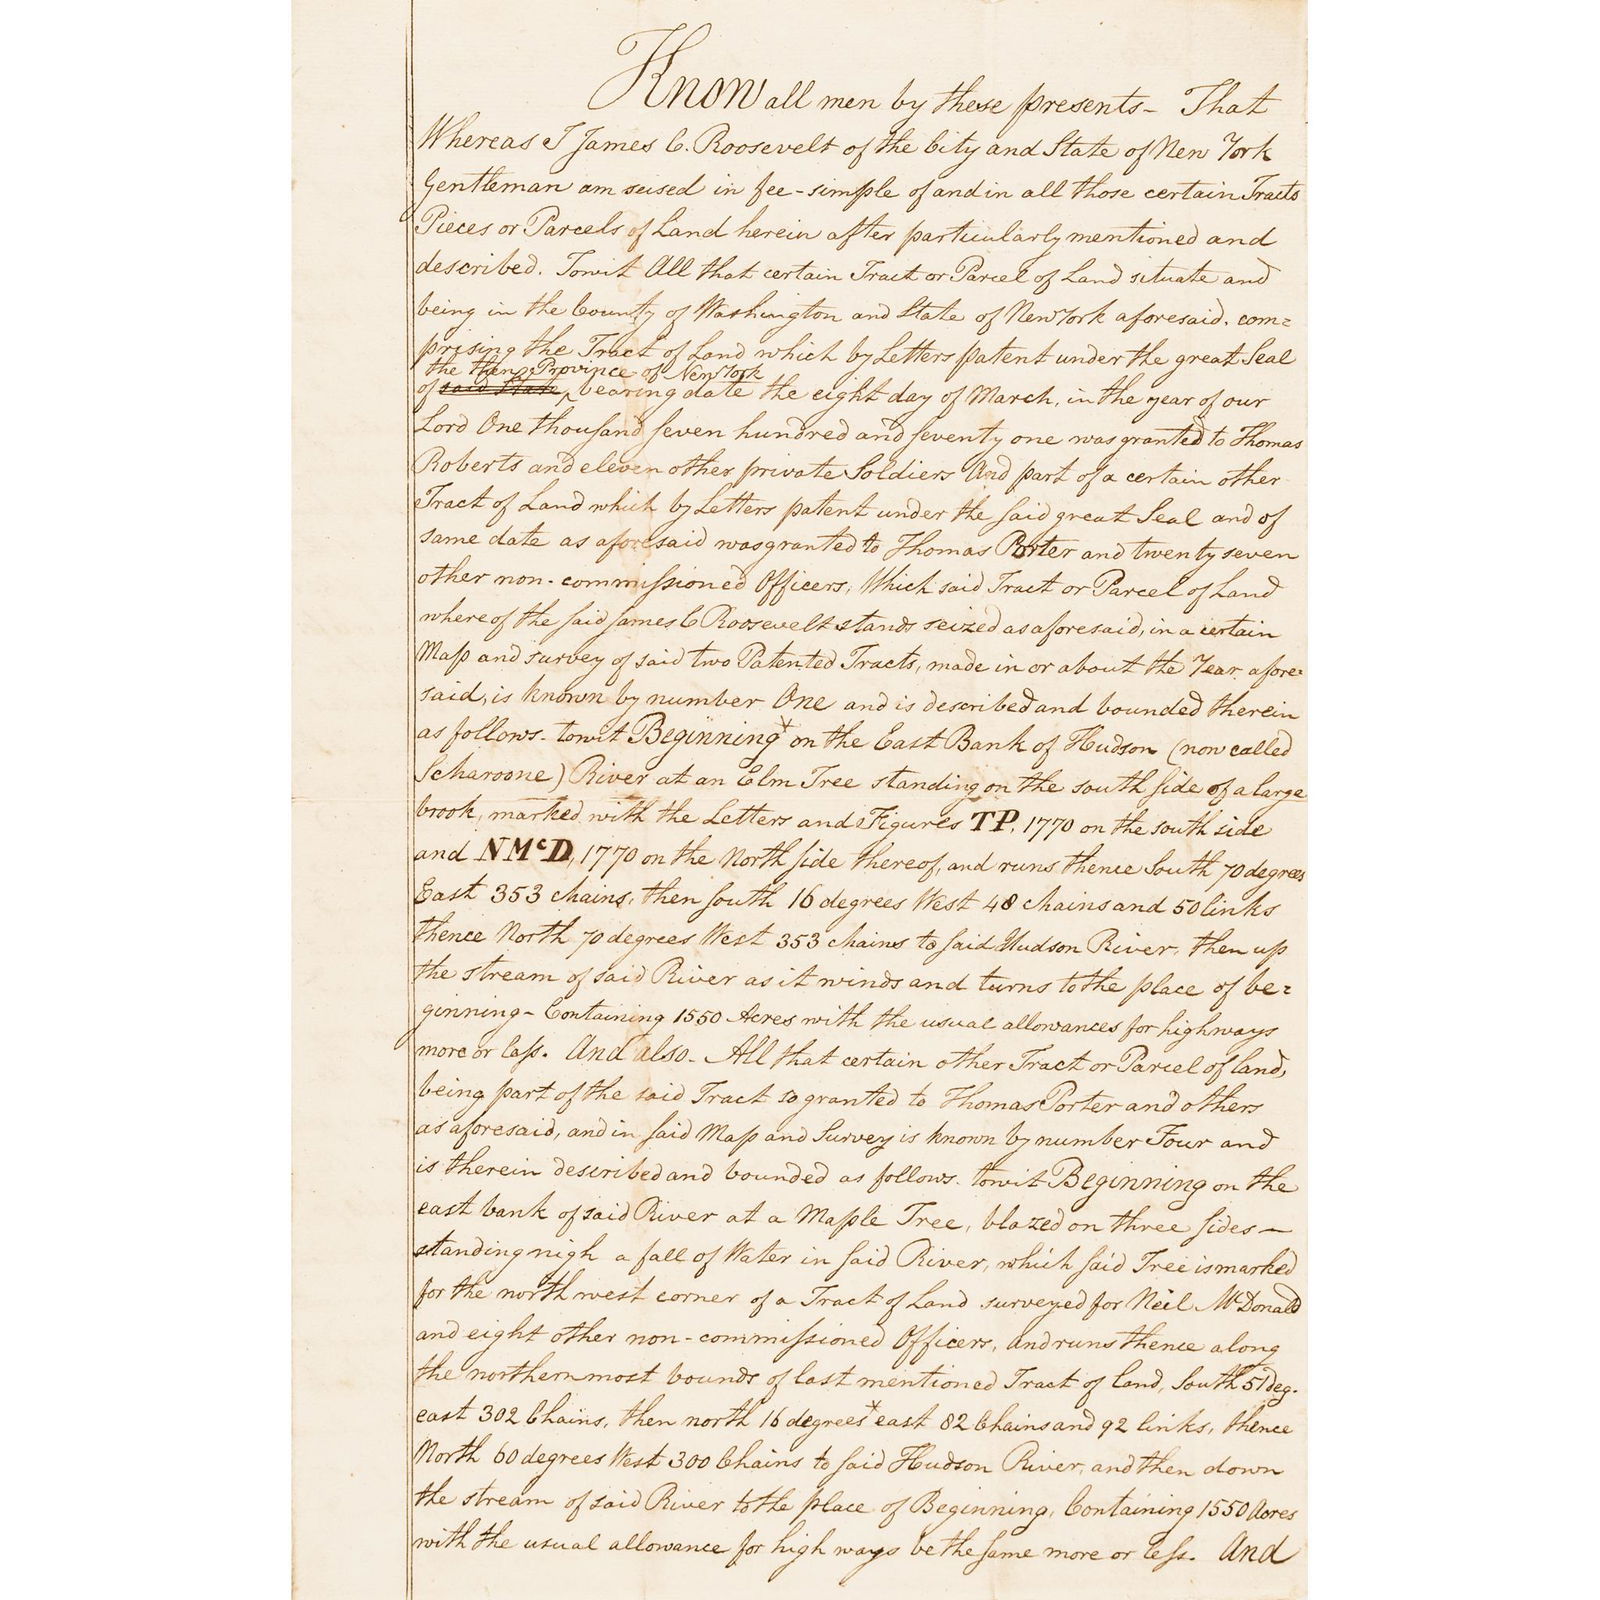 Know all men by these presents - That
Whereas I James C. Roosevelt of the City and State of New York
Gentleman am seised in fee-simple of and in all those certain Tracts
Pieces or Parcels of Land herein after particularly mentioned and
described. Towit All that certain Tract or Parcel of Land situate and
being in the County of Washington and State of New York aforesaid. com=
prising the Tract of Land which by Letters patent under the great Seal
the then Province of New York
of said State ‸ bearing date the eight day of March, in the year of our
Lord One thousand seven hundred and seventy one was granted to Thomas
Roberts and eleven other private Soldiers And part of a certain other
Tract of Land which by Letters patent under the said great Seal and of
same date as aforesaid was granted to Thomas Porter and twenty seven
other non-commissioned Officers; Which said Tract or Parcel of Land
where of the said James C Roosevelt stands seized as aforesaid, in a certain
Map and survey of said two Patented Tracts, made in or about the Year afore=
said, is known by number One and is described and bounded therein
as follows. towit Beginning * on the East Bank of Hudson (now called
Scharoone) River at an Elm Tree standing on the south side of a large
brook, marked with the Letters and Figures TP. 1770 on the south side
and N McD, 1770 on the North side thereof, and runs thence South 70 degrees
East 353 chains, then south 16 degrees West 48 chains and 50 links
thence North 70 degrees West 353 chains to said Hudson River, then up
the stream of said River as it winds and turns to the place of be=
ginning - Containing 1550 Acres with the usual allowances for highways
more or less. And also. All that certain other Tract or Parcel of land,
being part of the said Tract so granted to Thomas Porter and others
as aforesaid, and in said Map and Survey is known by number Four and
is therein described and bounded as follows. towit Beginning on the
east bank of said River at a Maple Tree, blazed on three sides -
standing nigh a fall of Water in said River, which said Tree is marked
for the north west corner of a Tract of Land surveyed for Neil McDonald
and eight other non-commissioned Officers, and runs thence along
the northernmost bounds of last mentioned Tract of land, South 51 deg.
east 302 Chains, then north 16 degrees * east 82 Chains and 92 links, thence
North 60 degrees West 300 Chains to said Hudson River, and then down
the stream of said River to the place of Beginning, Containing 1550 Acres
with the usual allowance for high ways be the same more or less. And